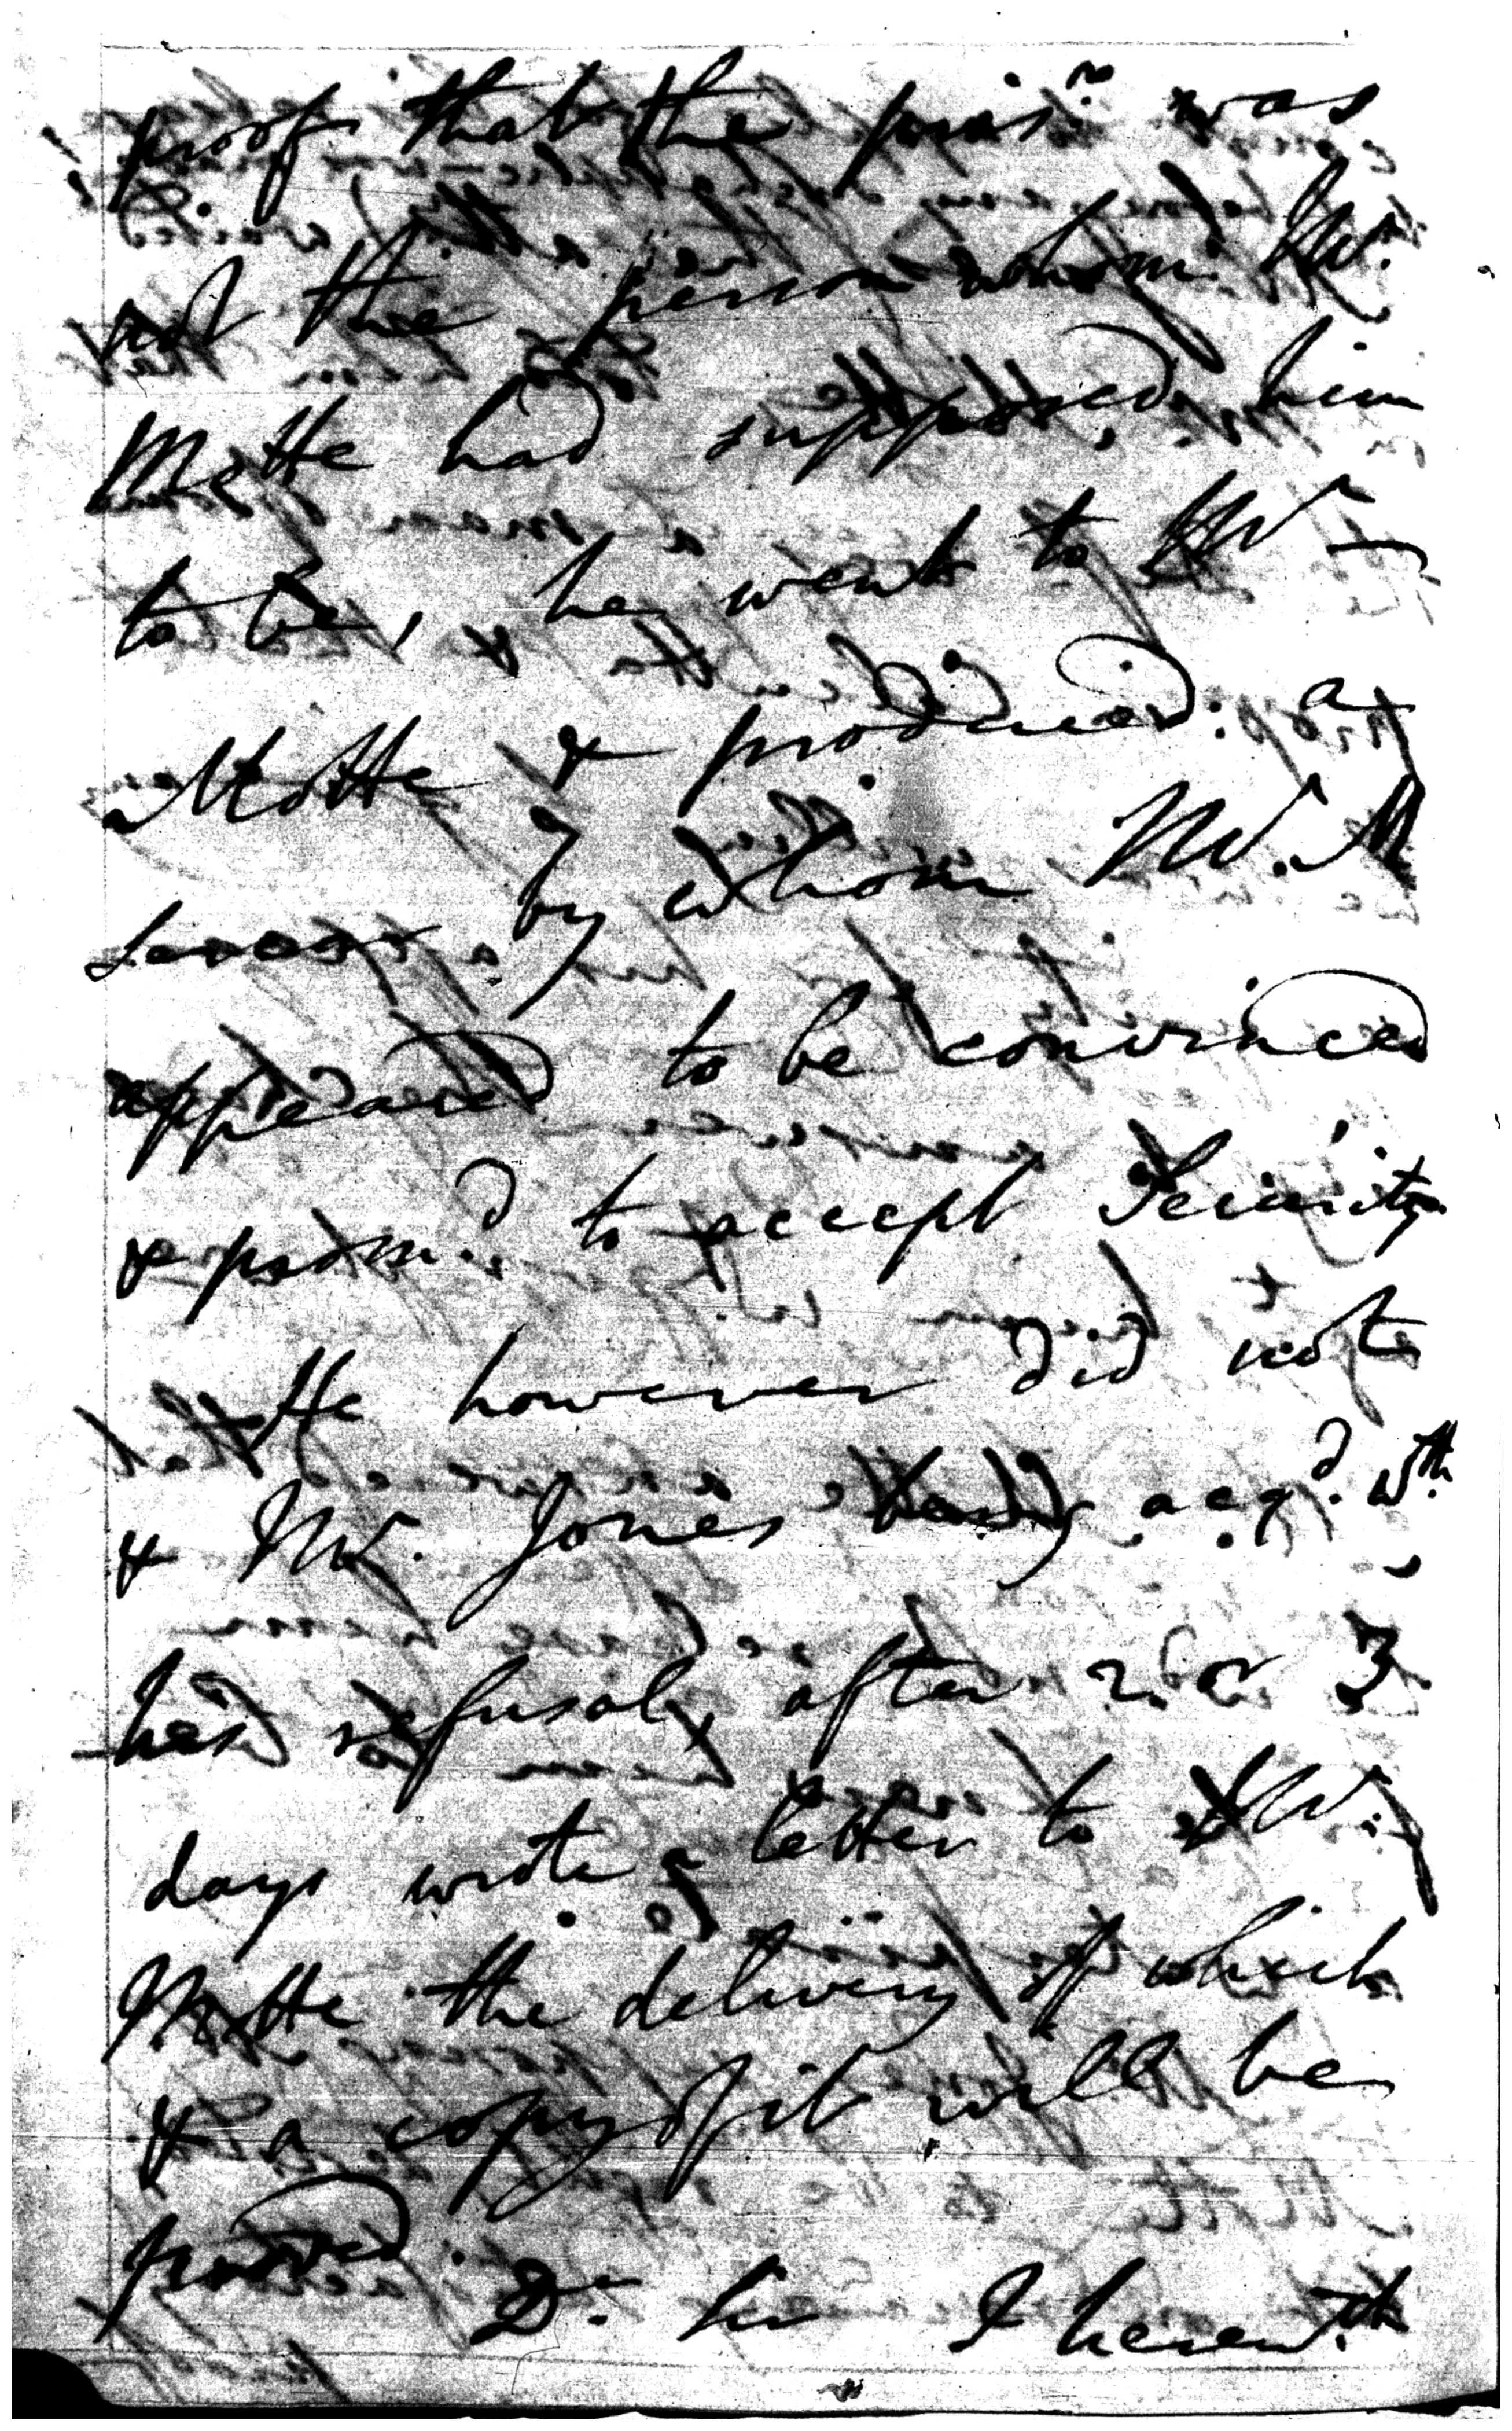 proof that the pris.r was
not the person whom W.
Motte had supposed him
to be, he went to W
Motte & produced a
by whom W. M
appeared to be convinced
& prom.d to accept Security
He however did not
& W. Jones acq.d w.th
his refusal, after 2 or 3
days wrote a letter to W.
Motte the delivery of which
& a copy of it will be
proved.
D.r Sir I herew.th